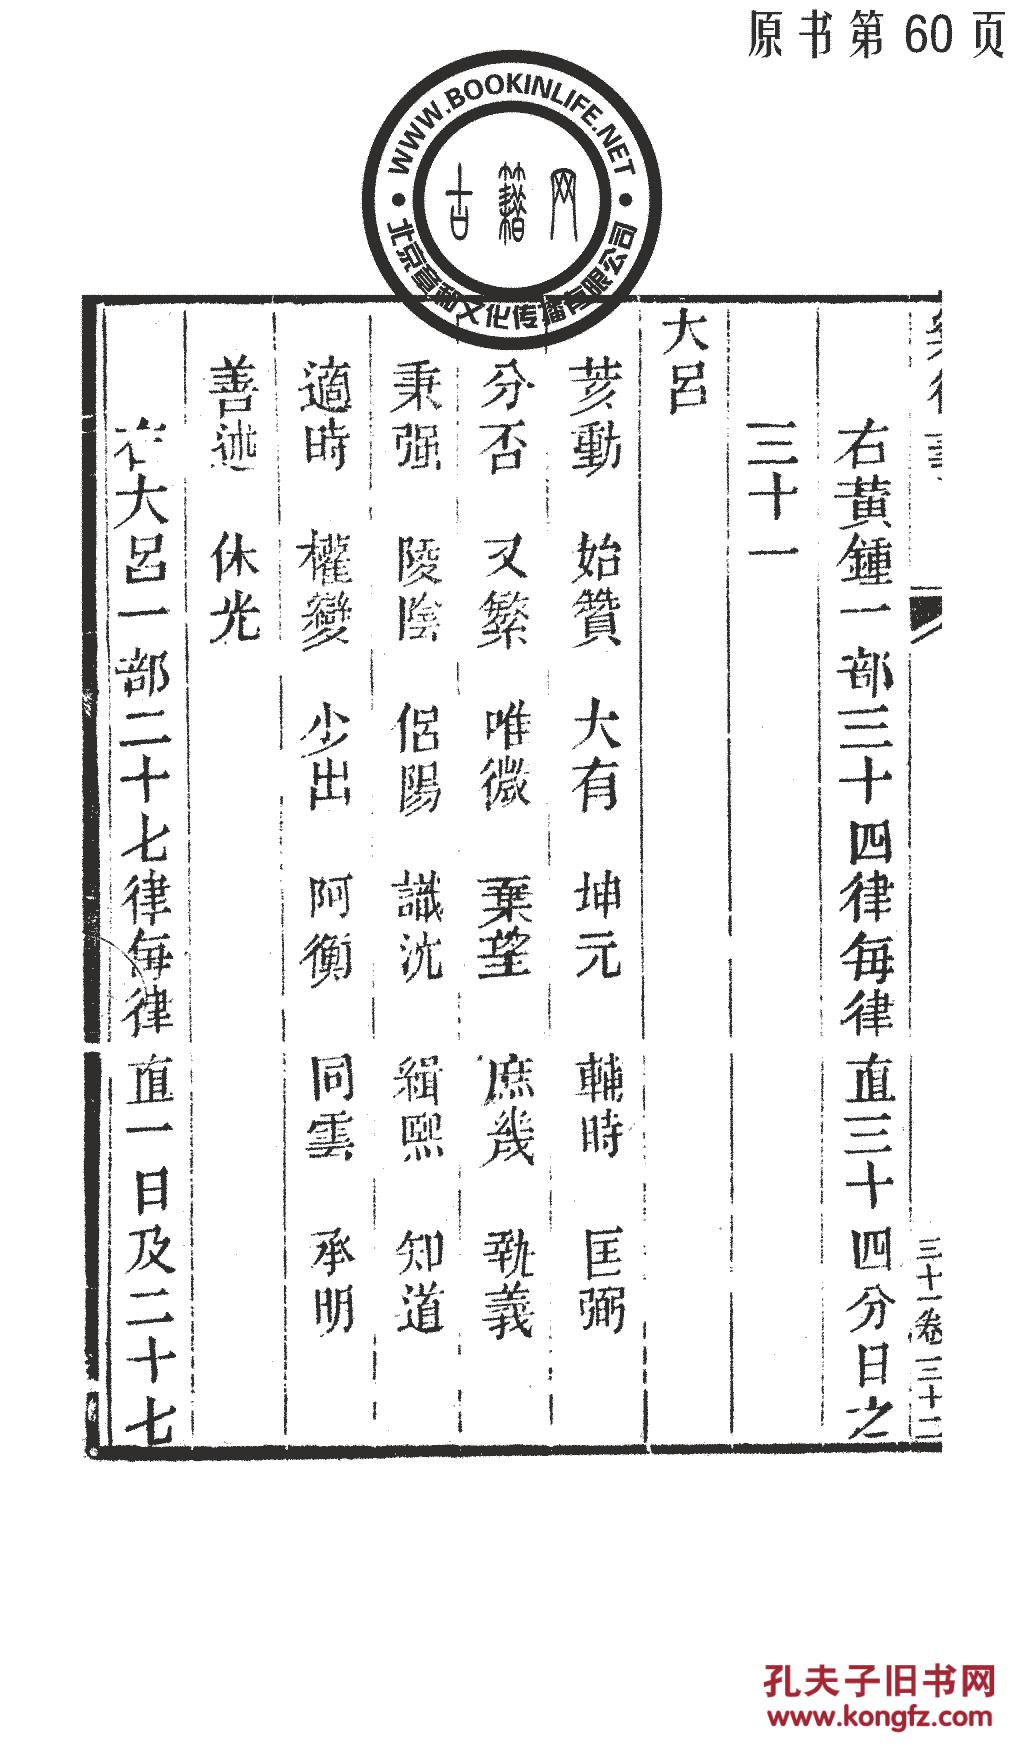 原书第60页
WWW.BOOKINLIFE.NET
古籍网
北京章和文化传播有限公司
右黃鍾一部三十四律每律直三十四分日之
三十一
大呂
荄動 始贊 大有 坤元 輔時 匡弼
分否 又繁 唯微 棄望 庶幾 執義
秉强 陵陰 侶陽 識沈 緝熙 知道
適時 權變 少出 阿衡 同雲 承明
善述 休光
右大呂一部二十七律每律直一日及二十七
三十一卷三十二
孔夫子旧书网
www.kongfz.com